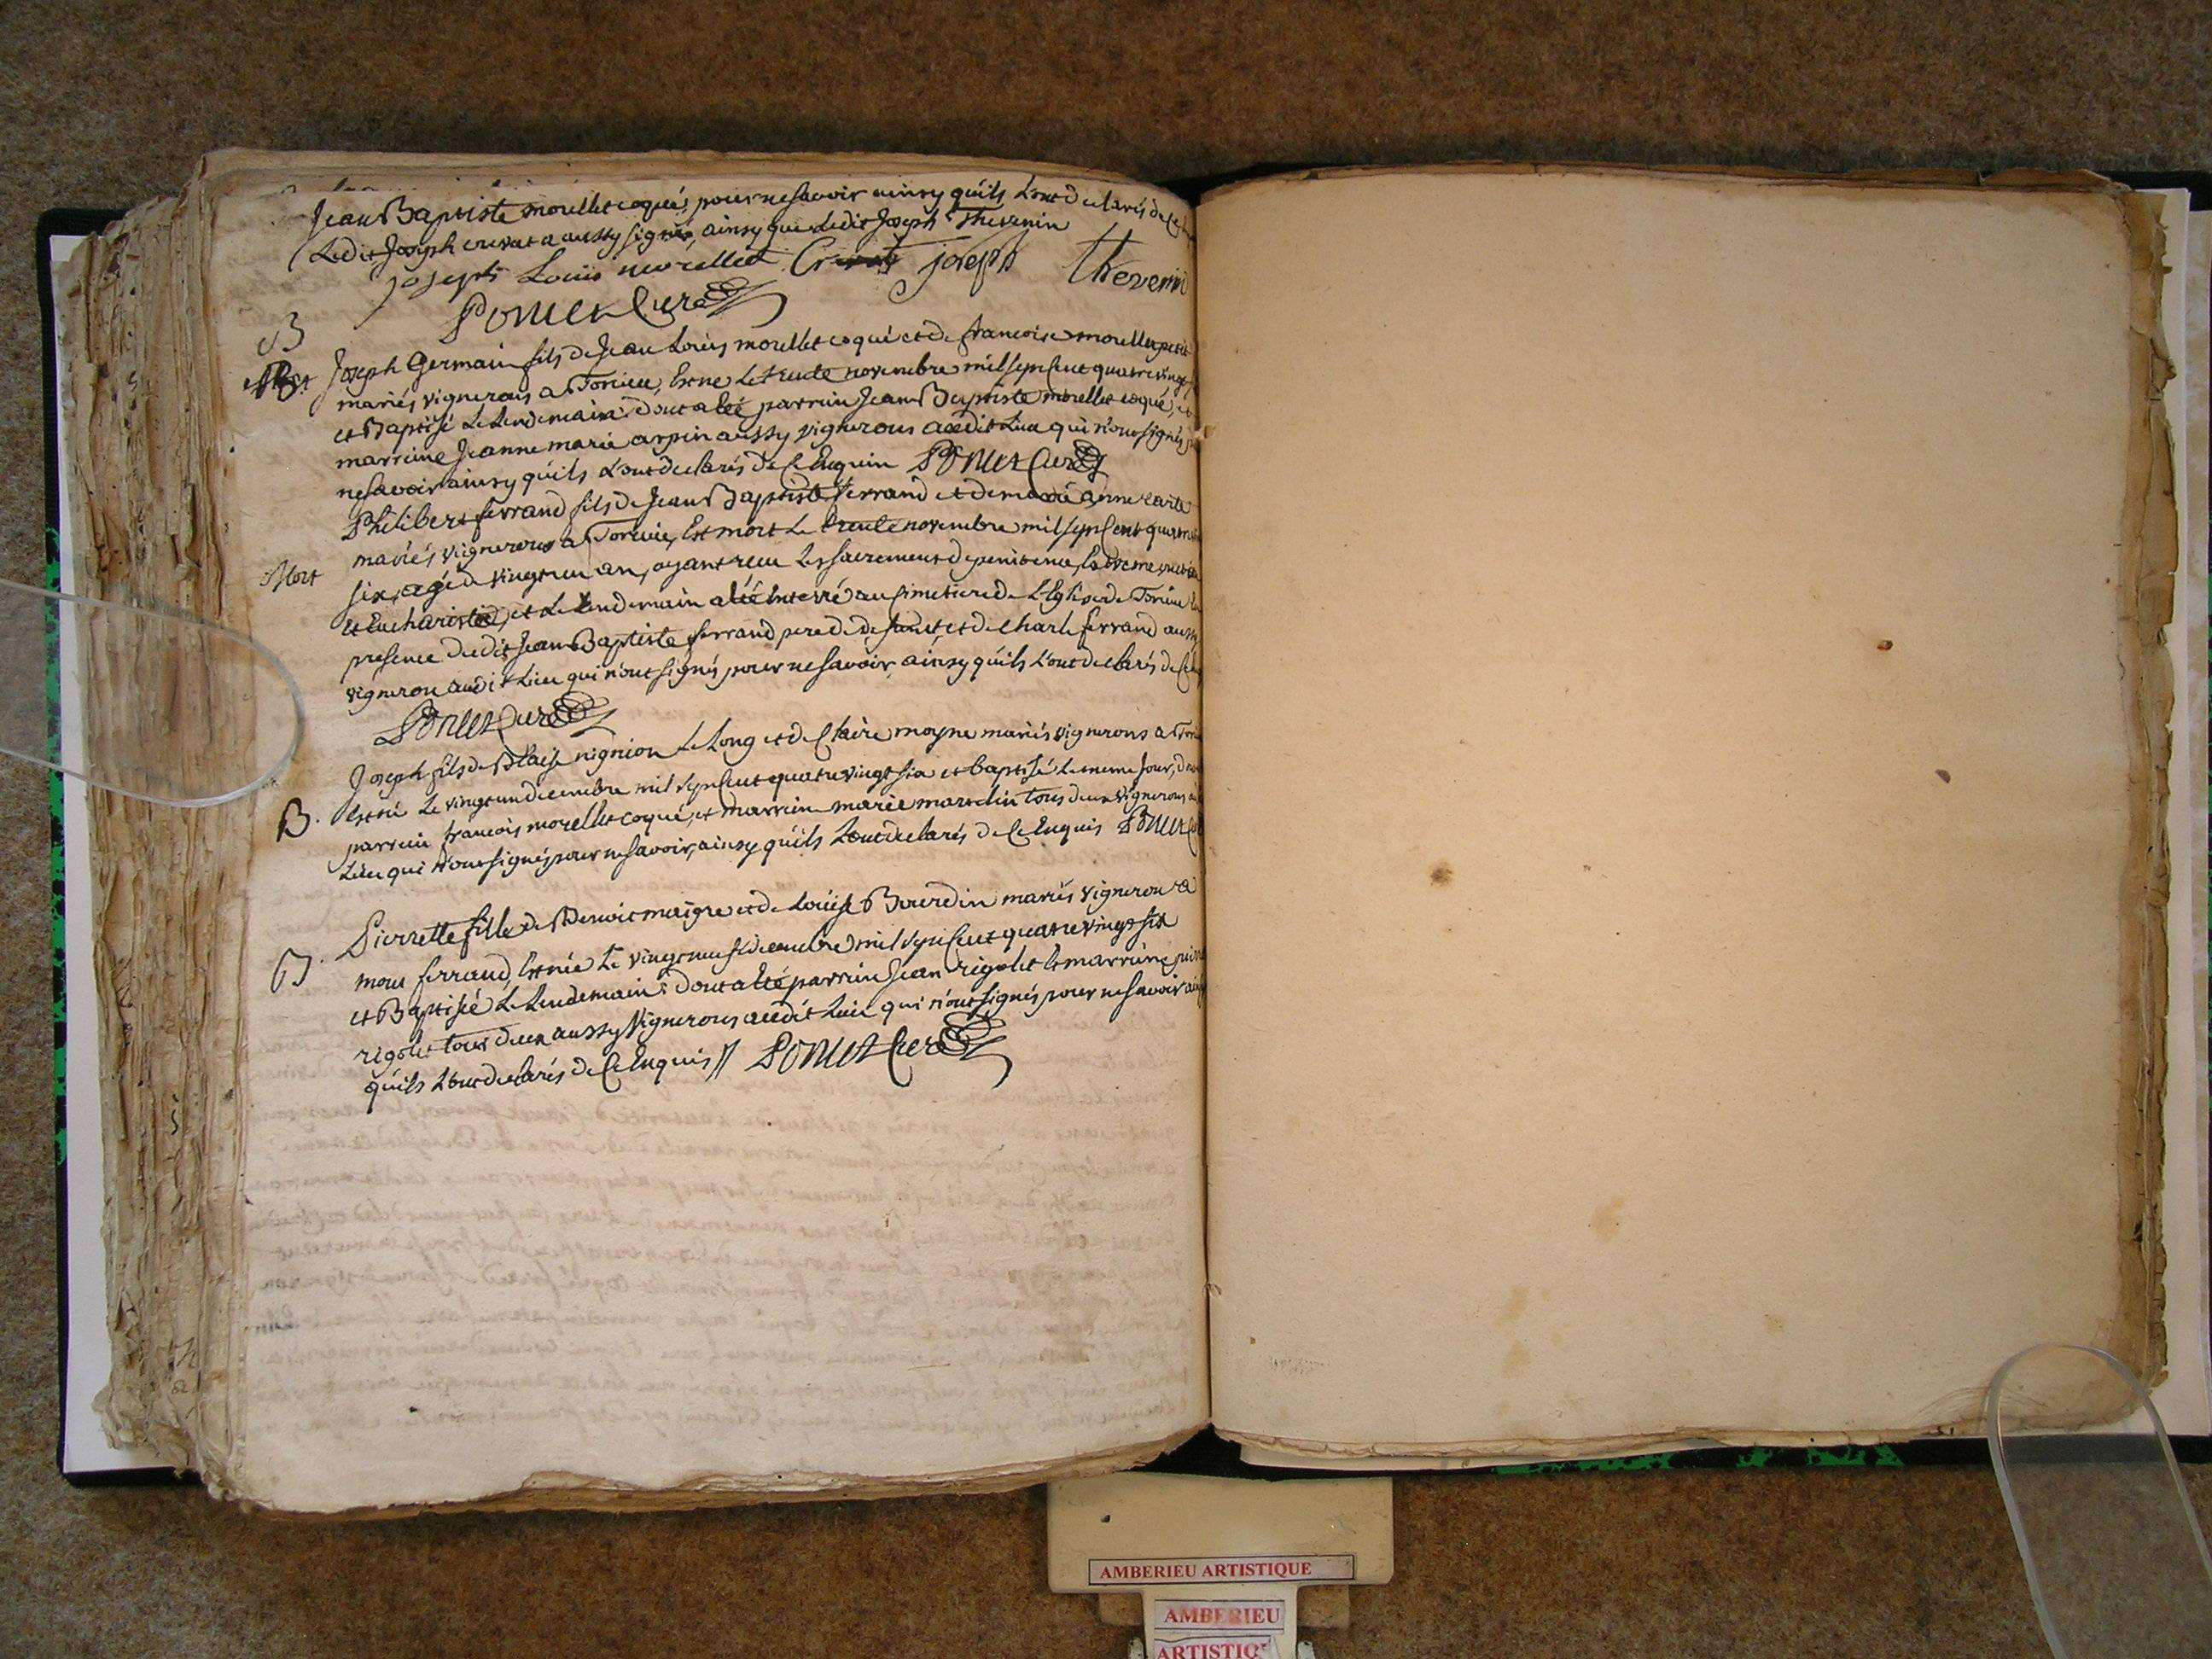 Jean Baptiste morellet coqué, pour ne savoir ainsy qu'ils L'ont declarés de ce
Ledit Joseph crevat a aussy signé, ainsy que Ledit Joseph Thevenin
joseph Louis morellet Crevat joseph thevenin
Ponet Curé
B
Joseph Germain fils de Jean Louis morellet coqué et de francoise morellet petit
mariés vignerons a Torcieu, Est né Le trente novembre mil sept Cent quatre vingt
et Baptisé Le Lendemain: dont a eté parrein Jean Baptiste morellet coqué, et
marreine Jeanne marie arpin aussy vignerons audit Lieu qui n'ont signés
ne savoir ainsy qu'ils L'ont declarés de ce Enquis Ponet Curé
Philibert ferrand fils de Jean Baptiste ferrand et de marie anne carte
mariés vignerons a Torcieu, Est mort Le trente novembre mil sept Cent quatre
Mort
six, agé de vingt un an, ayant reçu Les sacrements de penitence, Extreme onction
et Eucharistie, et Le Lendemain a eté Enterré au Cimetiere de L'Eglise de Torcieu
presence dudit Jean Baptiste ferrand pere de defunct, et de Charle ferrand aussy
vigneron audit Lieu qui n'ont signés pour ne savoir, ainsy qu'ils L'ont declarés de ce
Ponet Curé
Joseph fils de Blaise nignion Le Long et de Claire moyne mariés vignerons a
Est né Le vingt un decembre mil sept Cent quatre vingt six et baptisé Le meme Jour, dont
B.
parrein francois morellet coqué, et marreine marie marcelin tous deux vignerons
Lieu qui n'ont signés pour ne savoir, ainsy qu'ils L'ont declarés de ce Enquis Ponet
Pierrette fille de Benoit maigre et de Loüise Bourdin mariés vigneron a
B.
mont ferrand, Est née Le vingt neuf decembre mil sept Cent quatre vingt six
et Baptisée Le Lendemain: dont a eté parrein Jean rigolet et marreine
rigolet tous deux aussy vignerons audit Lieu qui n'ont signés pour ne savoir
qu'ils L'ont declarés de ce Enquis // Ponet Curé
AMBERIEU ARTISTIQUE
AMBERIEU